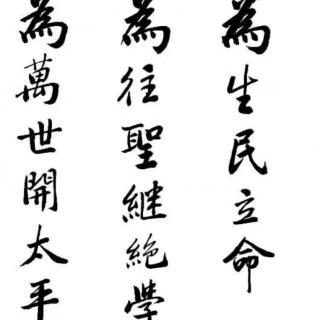 為生民立命
為往聖継絶學
為萬世開太平